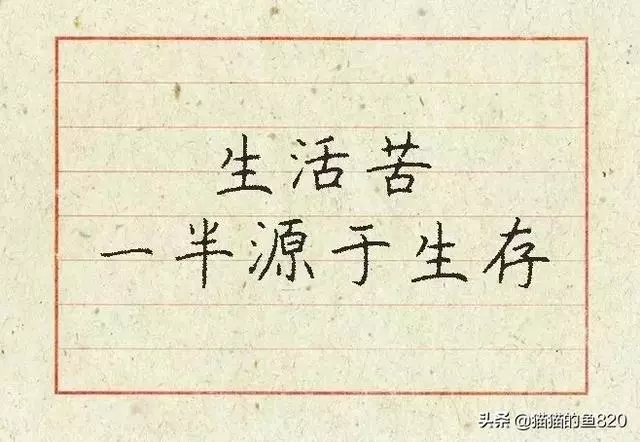 生活苦
一半源于生存
头条 @猫猫的鱼820